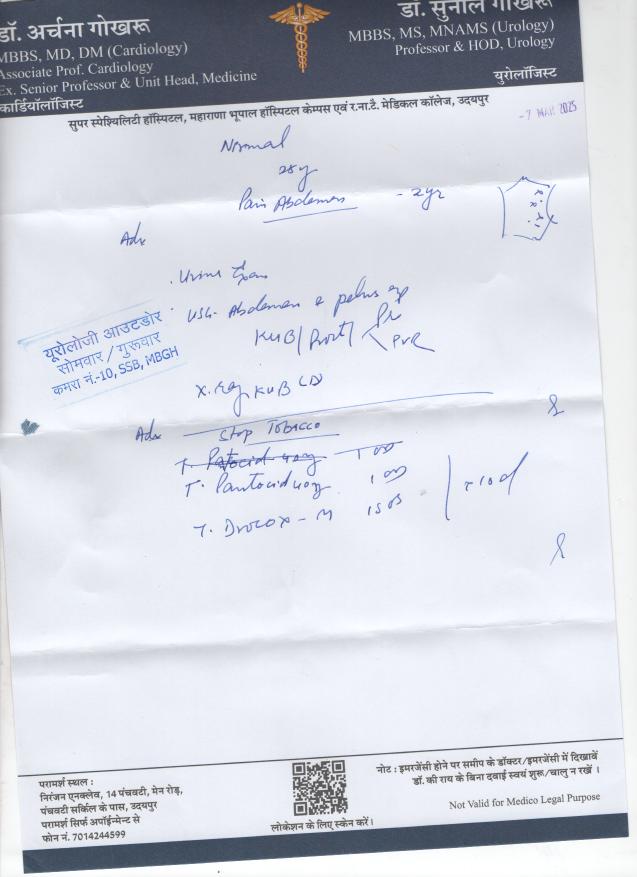 डॉ. अर्चना गोखरू
MBBS, MD, DM (Cardiology)
Associate Prof. Cardiology
Ex. Senior Professor & Unit Head, Medicine
कार्डियोलॉजिस्ट
डॉ. सुनील गोखरू
MBBS, MS, MNAMS (Urology)
Professor & HOD, Urology
यूरोलॉजिस्ट
सुपर स्पेश्यिलिटी हॉस्पिटल, महाराणा भूपाल हॉस्पिटल केम्पस एवं र.ना.टै. मेडिकल कॉलेज, उदयपुर
-7 MAR 2025
Normal
28y
Pain Abdomen - 2yr
Adv
. Urine Exam
USG. Abdomen & pelvis
KUB/Prost/ Pre
PVR
X.Ray KUB
यूरोलोजी आउटडोर
सोमवार / गुरूवार
कमरा नं.-10, SSB, MBGH
Adv Stop Tobacco
T. Pantocid 40mg 1 OD
T. Drocox-M 1 BD
परामर्श स्थल :
निरंजन एनक्लेव, 14 पंचवटी, मेन रोड़,
पंचवटी सर्किल के पास, उदयपुर
परामर्श सिर्फ अपॉईन्मेन्ट से
फोन नं. 7014244599
लोकेशन के लिए स्केन करें।
नोट : इमरजेंसी होने पर समीप के डॉक्टर/इमरजेंसी में दिखावें
डॉ. की राय के बिना दवाई स्वयं शुरू/चालु न रखें ।
Not Valid for Medico Legal Purpose